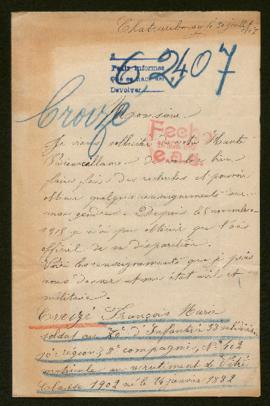 Chateaubourg le 30
Pedir informes
que se hace del
Devolver
2407
Croizé
Monsieur
Je viens solliciter de votre Haute
Bienveillance de vouloir bien
faire des recherches et pouvoir
obtenir quelques renseignements sur
mon gendre. Depuis le 8 novembre
1915 je n'ai pu obtenir que l'avis
officiel de sa disparition.
Voici les renseignements que je puis
vous donner sur son état civil et
militaire.
Croizé François Marie
soldat au d'Infanterie
10e région, 8e compagnie, No
matricule au recrutement de Vitré
Classe 1902 né le 14 janvier 1882